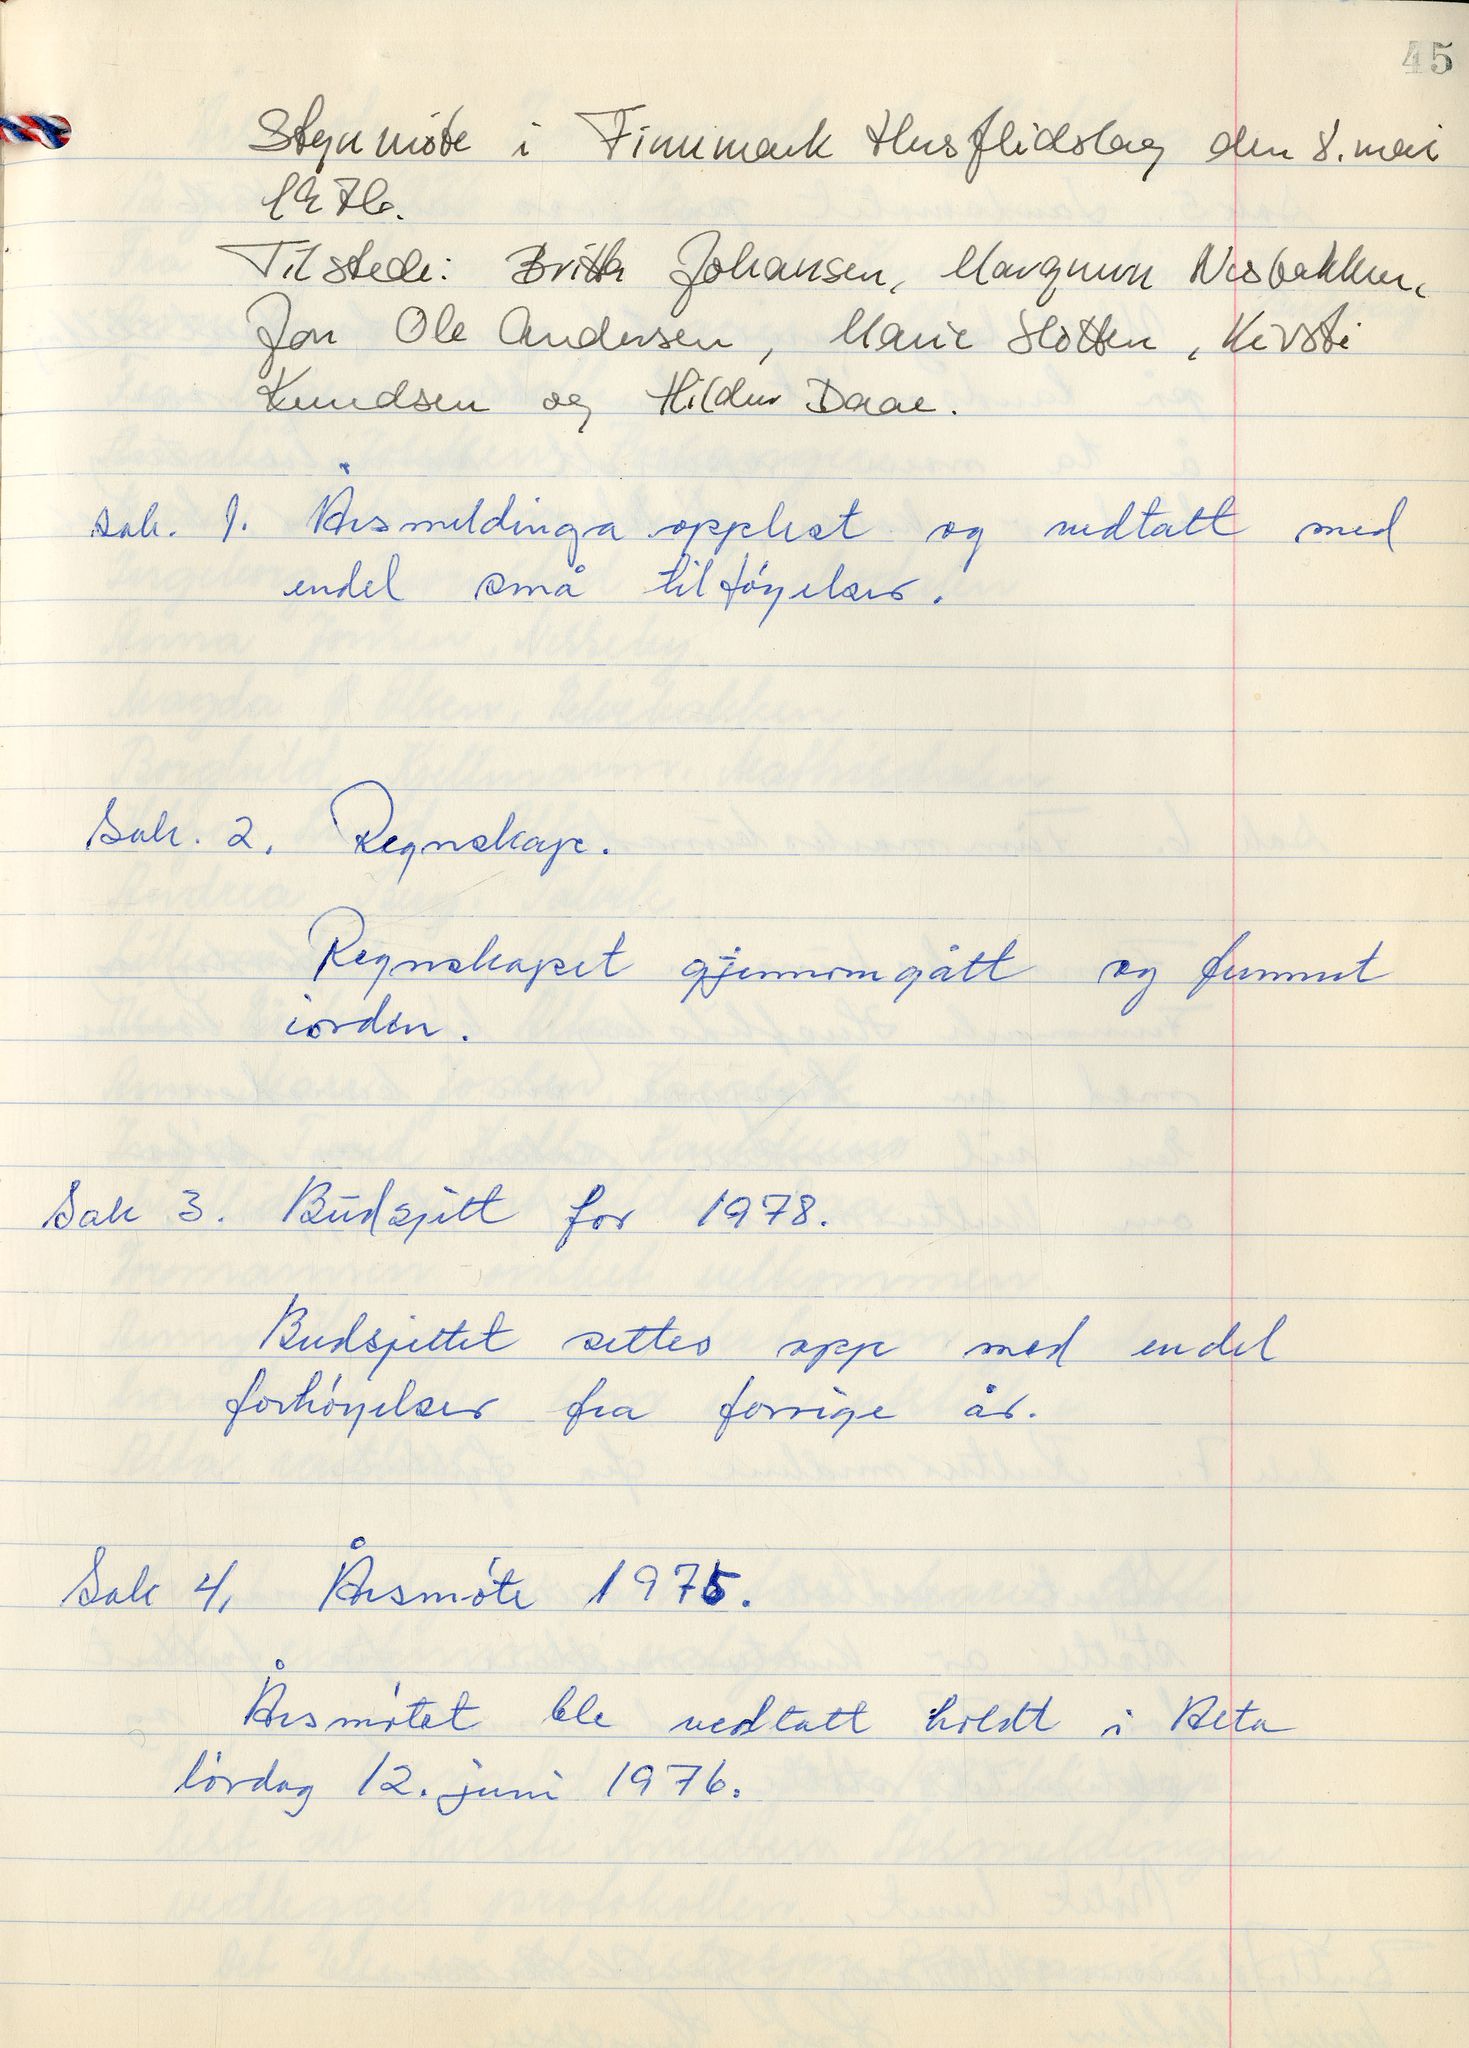 45
Styremöte i Finnmark Husflidslag den 8. mai
1976.
Tilstede: Britth Johansen, Margunn Nesbakken,
Jon Ole Andersen, Marie Slotten, Kirsti
Knudsen og Hildur Daae.
sak. 1. Årsmeldinga opplest og vedtatt med
endel små tilföyelser.
Sak. 2. Regnskap.
Regnskapet gjennomgått og funnet
iorden.
Sak 3. Budsjett for 1978.
Budsjettet settes opp med endel
forhöyelser fra forrige år.
Sak 4. Årsmöte 1975.
Årsmötet ble vedtatt holdt i Alta
lördag 12. juni 1976.